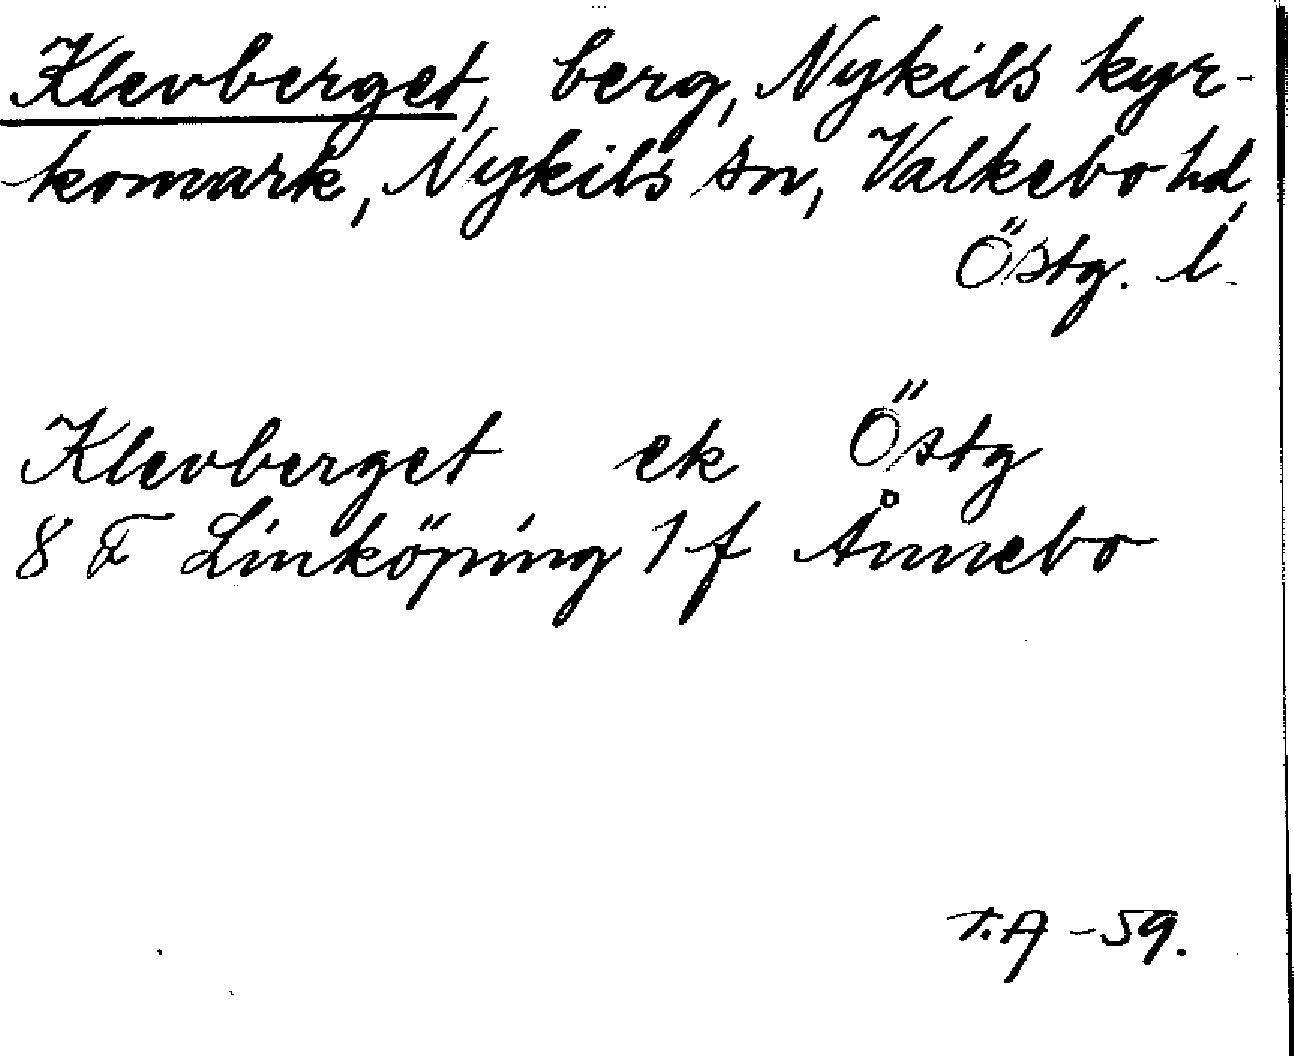 Klevberget, berg, Nykils kyr-
komark, Nykils sn, Valkebo hd,
Östg. l.
Klevberget ek Östg
8 F Linköping 1 f Ånnebo
T.A -59.